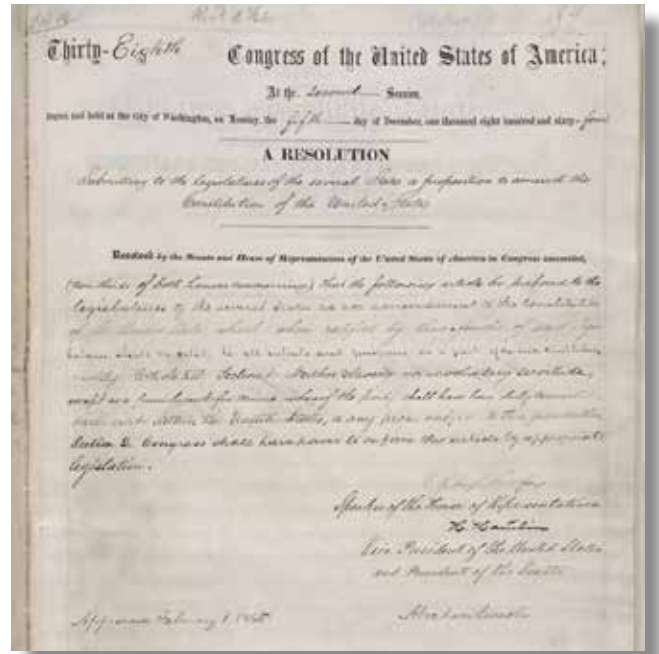 Thirty-Eighth Congress of the United States of America;
At the Second Session,
begun and held at the City of Washington, on Monday, the fifth day of December, one thousand eight hundred and sixty-four
A RESOLUTION
Submitting to the legislatures of the several States a proposition to amend the
Constitution of the United States
Resolved by the Senate and House of Representatives of the United States of America in Congress assembled,
(two thirds of both houses concurring) that the following article be proposed to the
legislatures of the several States as an amendment to the Constitution
of the United States which when ratified by three-fourths of said legis-
latures shall be valid, to all intents and purposes as a part of the said Constitution
namely: Article XIII. Section 1. Neither slavery nor involuntary servitude,
except as a punishment for crime whereof the party shall have been duly convicted
shall exist within the United States, or any place subject to their jurisdiction
Section 2. Congress shall have power to enforce this article by appropriate
legislation.
Speaker of the House of Representatives
H. Hamlin
Vice President of the United States
and President of the Senate
Approved February 1, 1865 Abraham Lincoln